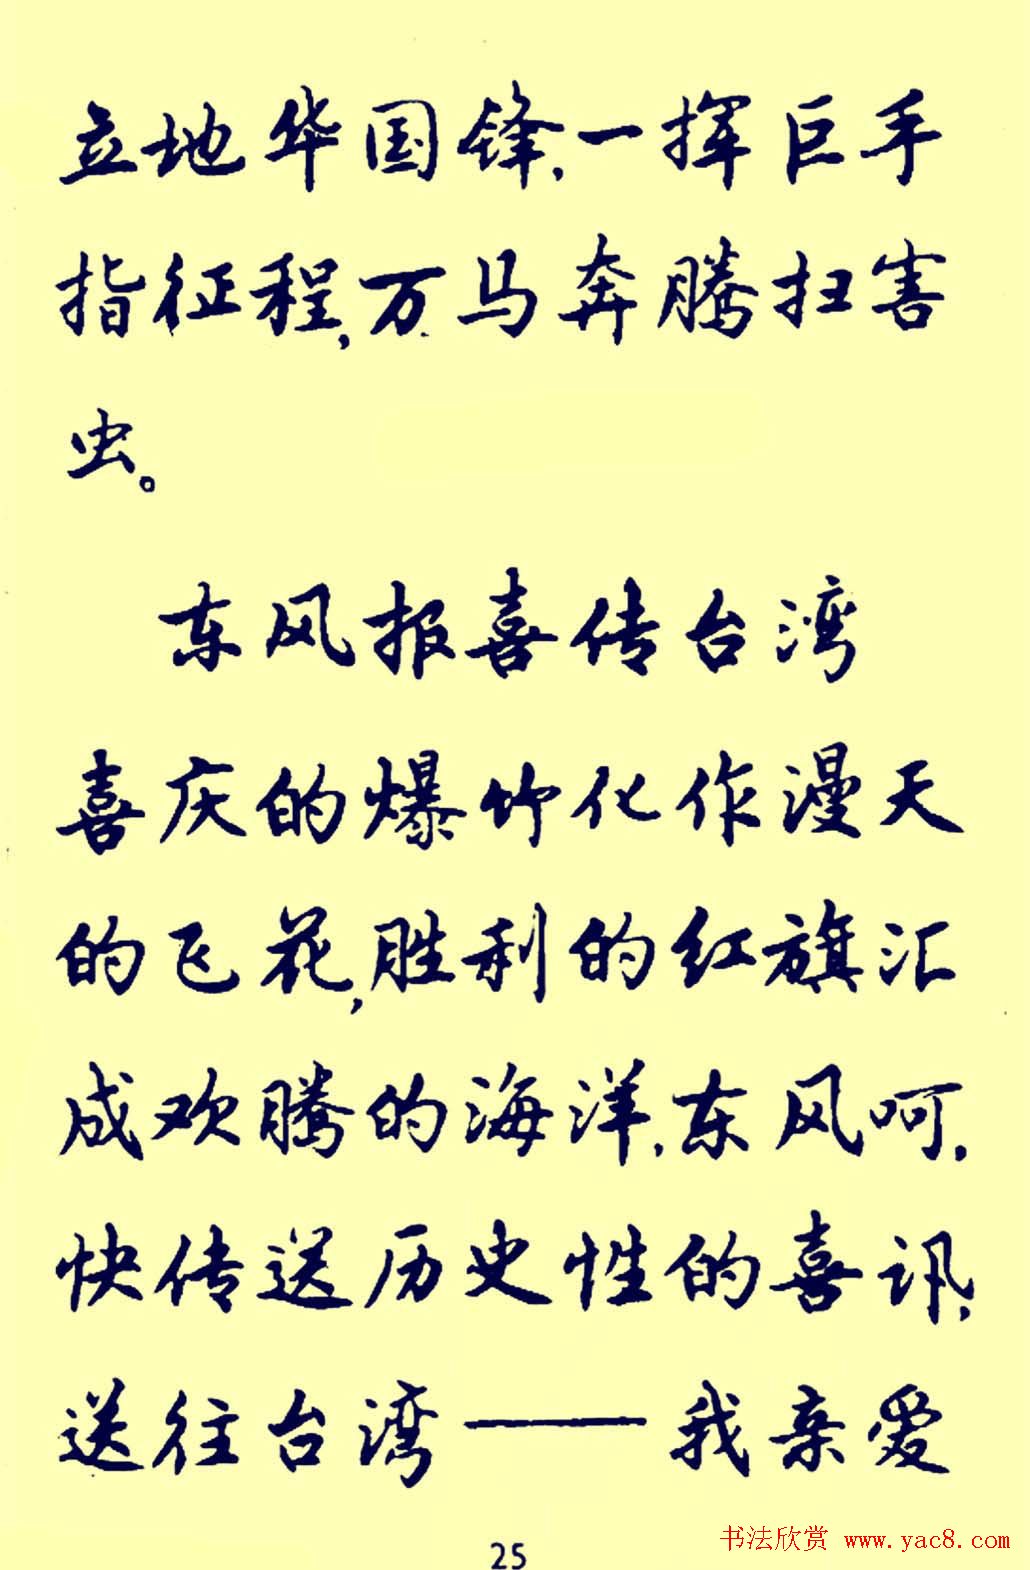 立地华国锋,一挥巨手
指征程,万马奔腾扫害
虫。
东风报喜传台湾
喜庆的爆竹化作漫天
的飞花,胜利的红旗汇
成欢腾的海洋,东风呵,
快传送历史性的喜讯,
送往台湾——我亲爱
25
书法欣赏 www.yac8.com